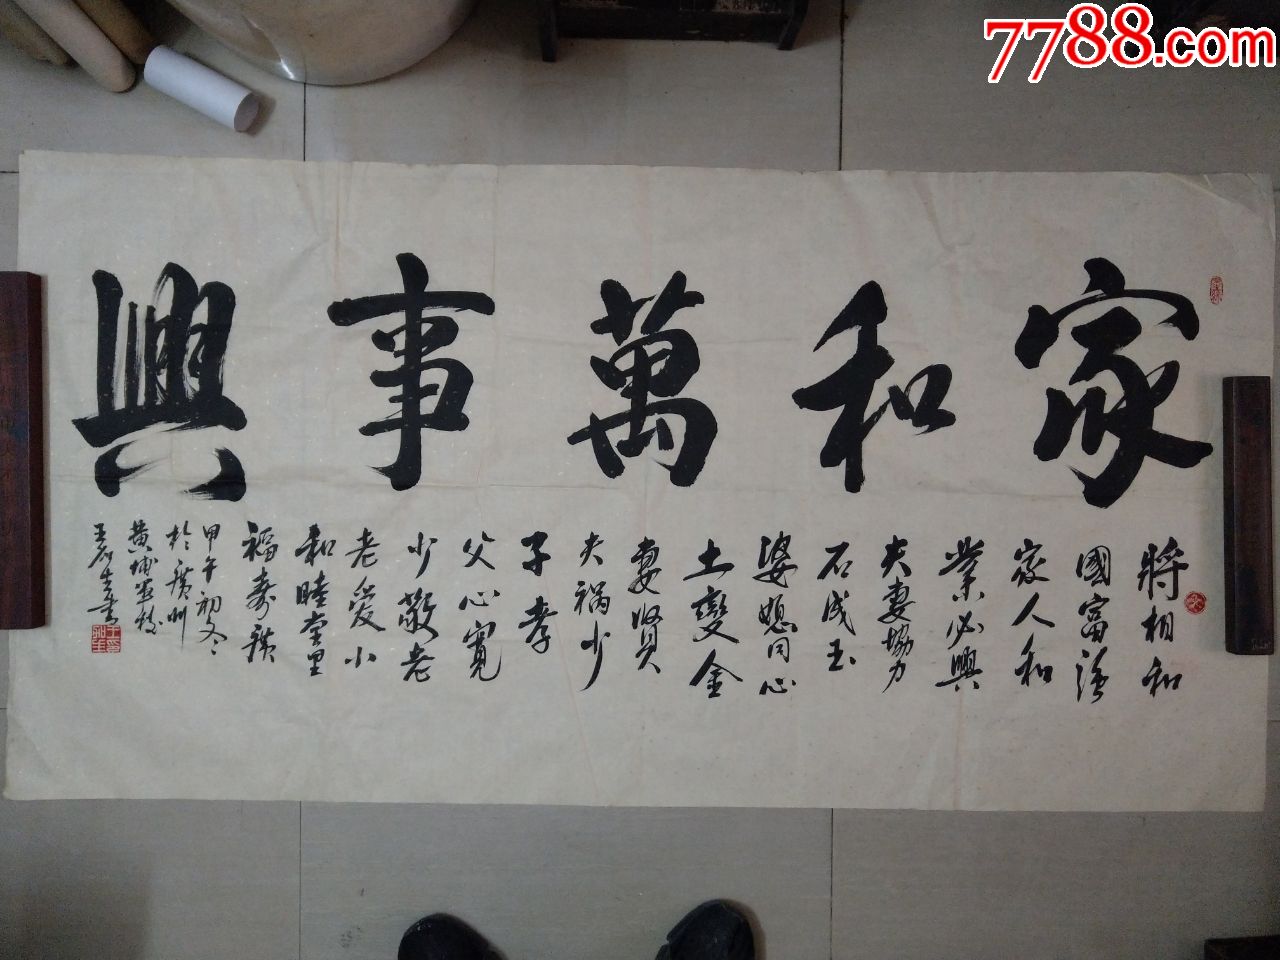 7788.com
家和萬事興
將相和
國富強
家人和
業必興
夫妻協力
石成玉
婆媳同心
土變金
妻賢
夫禍少
子孝
父心寬
少敬老
老愛小
和睦堂里
福壽
甲午初冬
於廣州
黄埔軍校